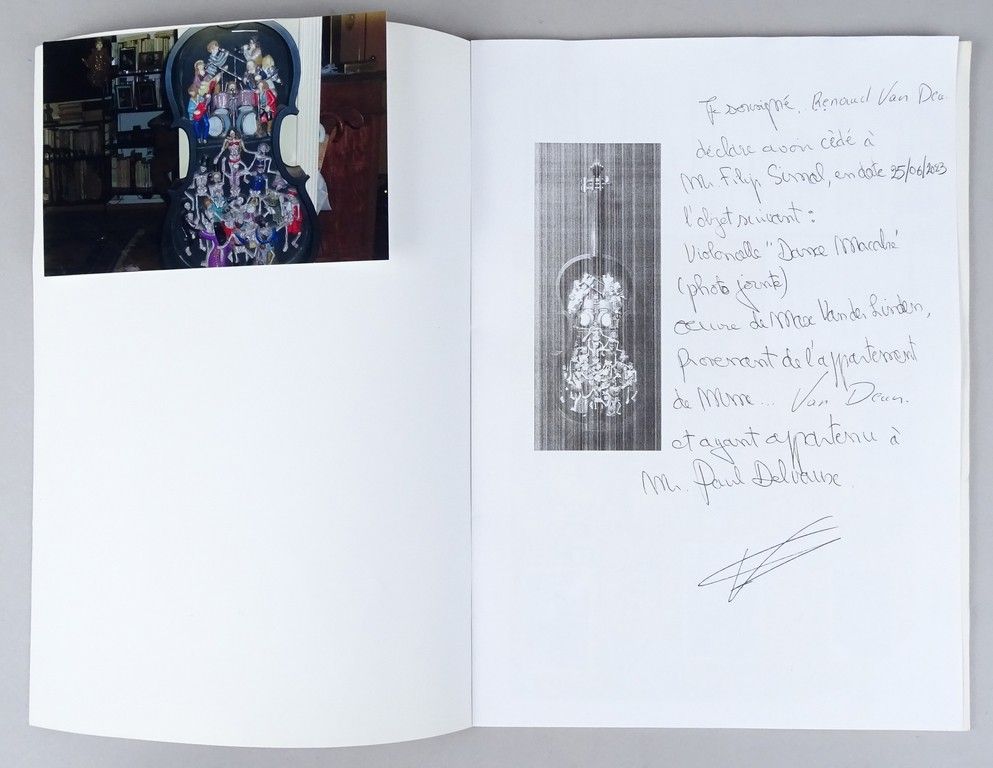 Je sousigné, Renaud Van Den
déclare avoir cédé à
Mr Filip Simal, en date 25/06/2023
l'objet suivant :
Violoncelle "Danse Macabre"
(photo jointe)
œuvre de Max Van der Linden,
provenant de l'appartement
de Mme ... Van
et ayant appartenu à
Mr. Paul Delvaux.